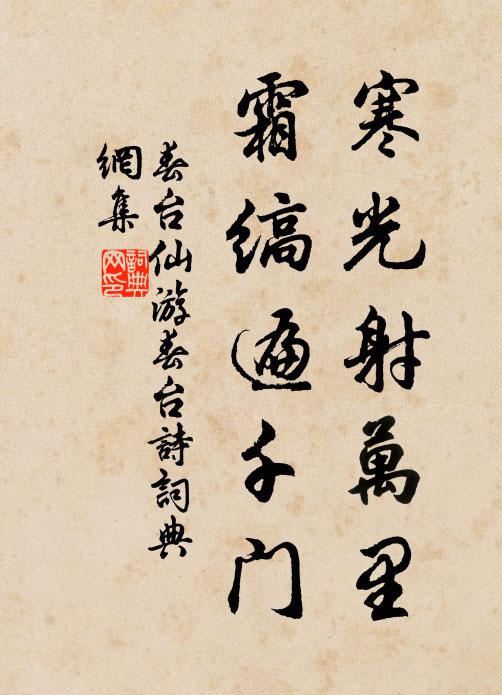 寒光射萬里
霜縞遍千門
春台仙游春台詩詞典
網集
詞典
网印